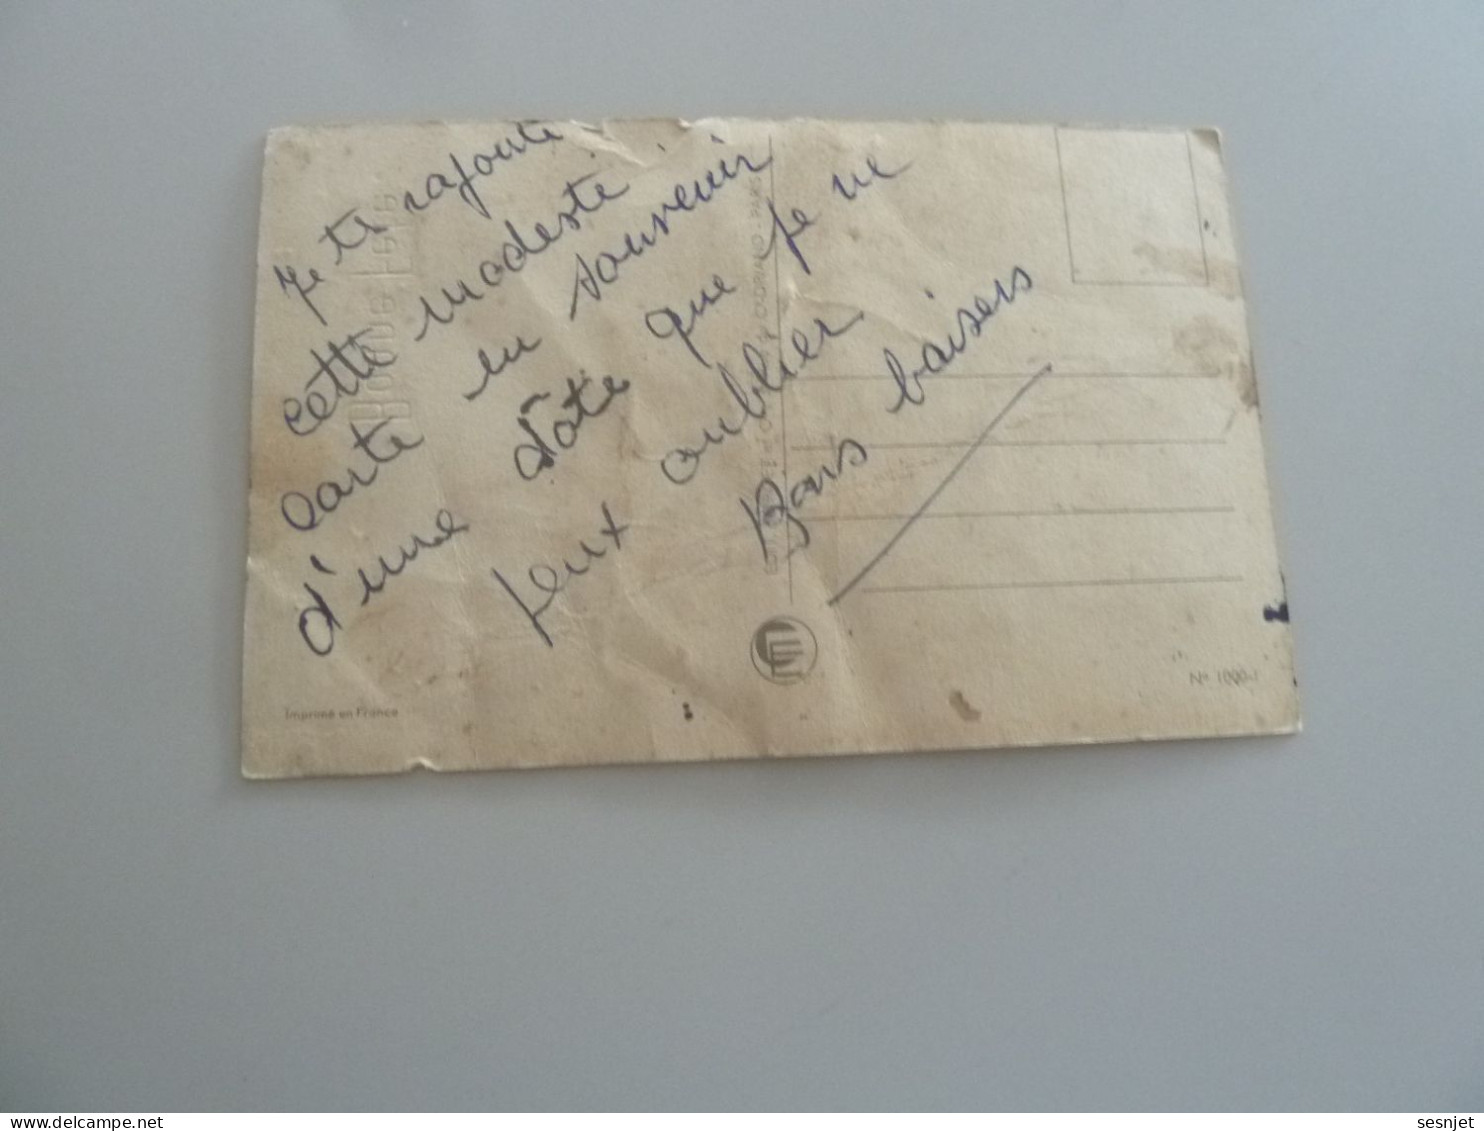 Je te rajoute
cette modeste
carte en souvenir
d'une date que je ne
peux oublier
Bons baisers
Bonne Fête
PARIS
Imprimé en France
N° 1000-1
delcampe.net
sesnjet